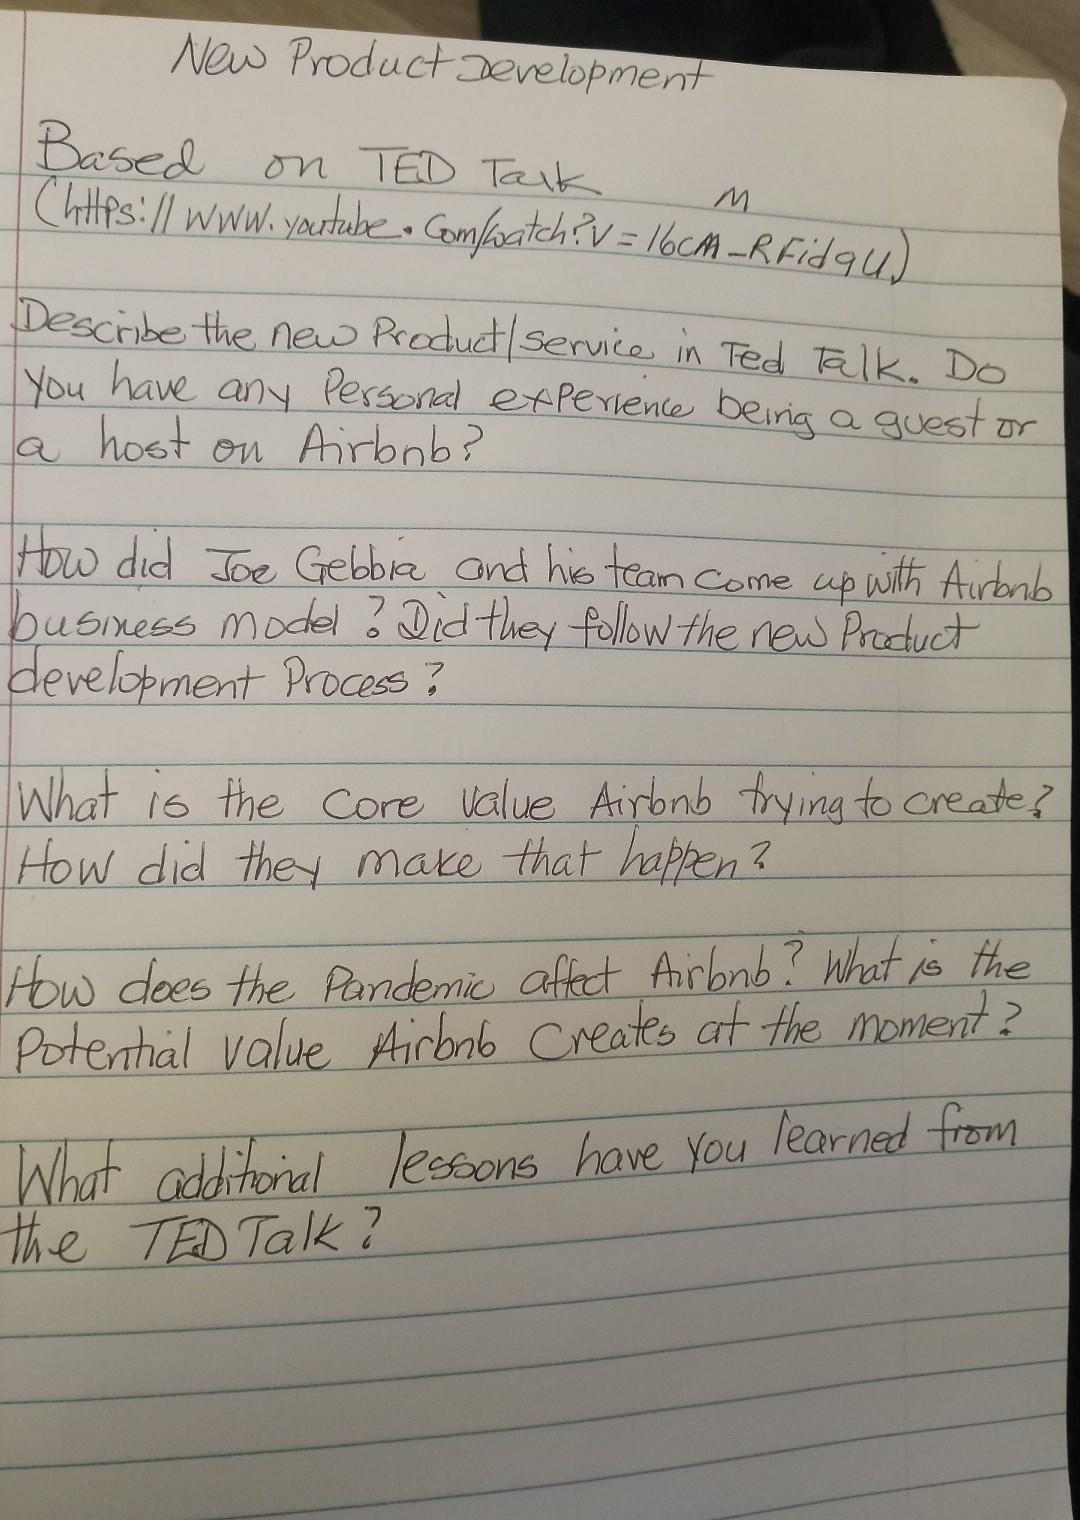 New Product Development
Based on TED Talk
M
(https://www.youtube.com/watch?v=16cM-RFid9U)
Describe the new Product/Service in Ted Talk. Do
You have any Personal experience being a guest or
a host on Airbnb?
How did Joe Gebbia and his team come up with Airbnb
business model? Did they follow the new Product
development Process?
What is the core value Airbnb trying to create?
How did they make that happen?
How does the Pandemic affect Airbnb? What is the
Potential value Airbnb Creates at the moment?
What additional lessons have you learned from
the TED Talk?